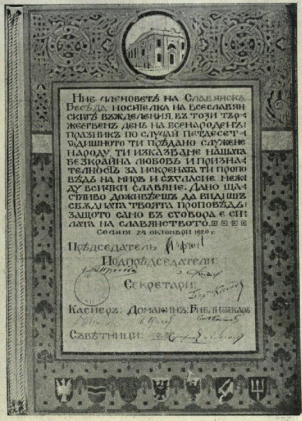 Ние членоветѣ на Славянска
Бесѣда носителка на всеславян
скитѣ въжделения, въ този тър
жественъ день на всенародния
празникъ по случай петдесет
годишното ти прѣдано служене
народу ти изказваме нашата
безкрайна любовь и призна
телность за искрената ти пропо
вѣдь на миръ и съгласие меж
ду всички славяне. Дано ща
стливо доживѣешъ да видишъ
сбѫдната твоята проповѣдь
защото само въ сговора е си
лата на славянството.
София 24 октомврий 1920 г.
Прѣдседатель
Подпрѣдседатели:
Секретари:
Касиеръ: Домакинъ: Библиотекарь
Съвѣтници: